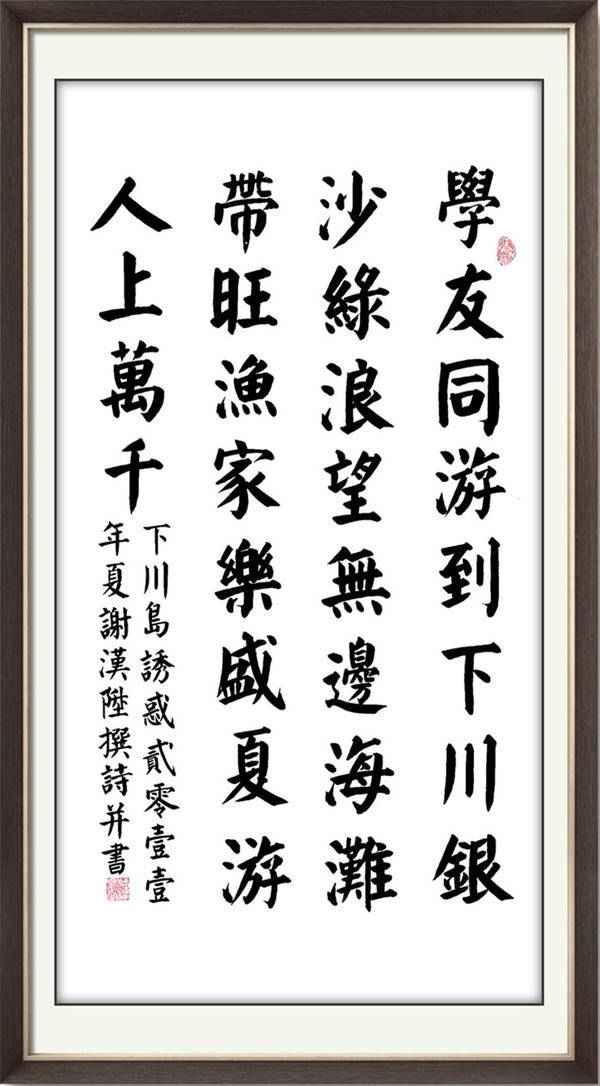 學友同游到下川銀
沙綠浪望無邊海灘
帶旺漁家樂盛夏游
人上萬千
下川島誘惑貳零壹壹
年夏謝漢陞撰詩并書